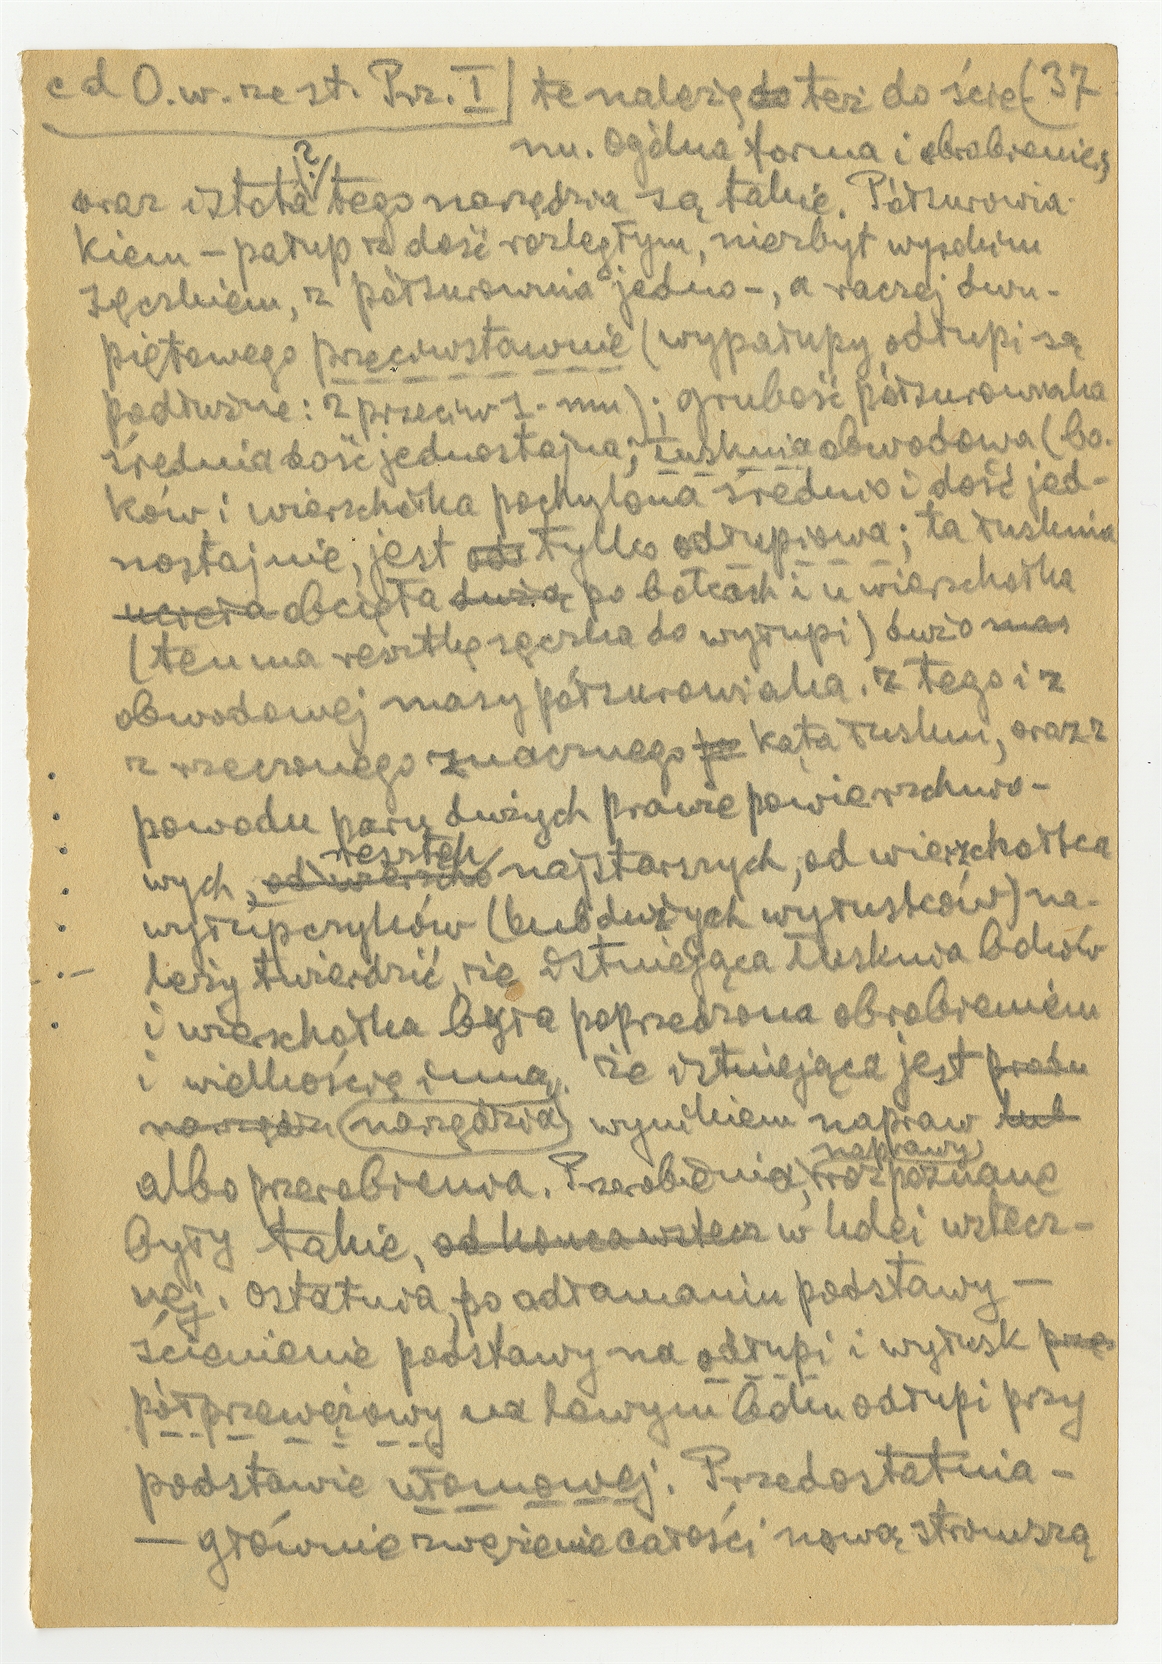 cd O.w. rz. st. Prz. I te należą do też do ście- (37
nu. Ogólna forma i obrobienie,
oraz istota ? tego narzędzia są takie. Półsurowia-
kiem – patup z dość rozległym, niezbyt wysokim
sęczkiem, z półsurownia jedno-, a raczej dwu-
piętowego przeciwstawnie (wypatupy odłupi są
podłużne: z przeciw 1-mu); grubość półsurowiaka
średnia dość jednostajna; łusknia obwodowa (bo-
ków i wierzchołka pochylona średnio i dość jed-
nostajnie, jest od tylko odłupiowa; ta łusknia
ucięła obcięła dużą po bokach i u wierzchołka
(ten ma resztkę sęczka do wyłupi) dużo mas
obwodowej masy półsurowiaka. Z tego i z
z rzeczonego znacznego po kąta łuskni, oraz z
powodu paru dużych prawie powierzchnio-
resztek
wych, od wierzcho najstarszych, od wierzchołka
wyłupczyków (lub dużych wyłusków) na-
leży twierdzić, że istniejąca łusknia boków
i wierzchołka była poprzedzona obrobieniem
i wielkością inną, że istniejąca jest produ
narzędzi narzędzia wynikiem napraw lub
naprawy
albo przerobienia. Przerobienia, rozpoznane
były takie, od końca wstecz w kolei wstecz-
nej. Ostatnia, po odłamaniu podstawy —
ścienienie podstawy na odłupi i wyłusk prze
półprzewężowy na lewym boku odłupi przy
podstawie ułomowej. Przedostatnia –
— głównie zwężenie całości nową stromszą